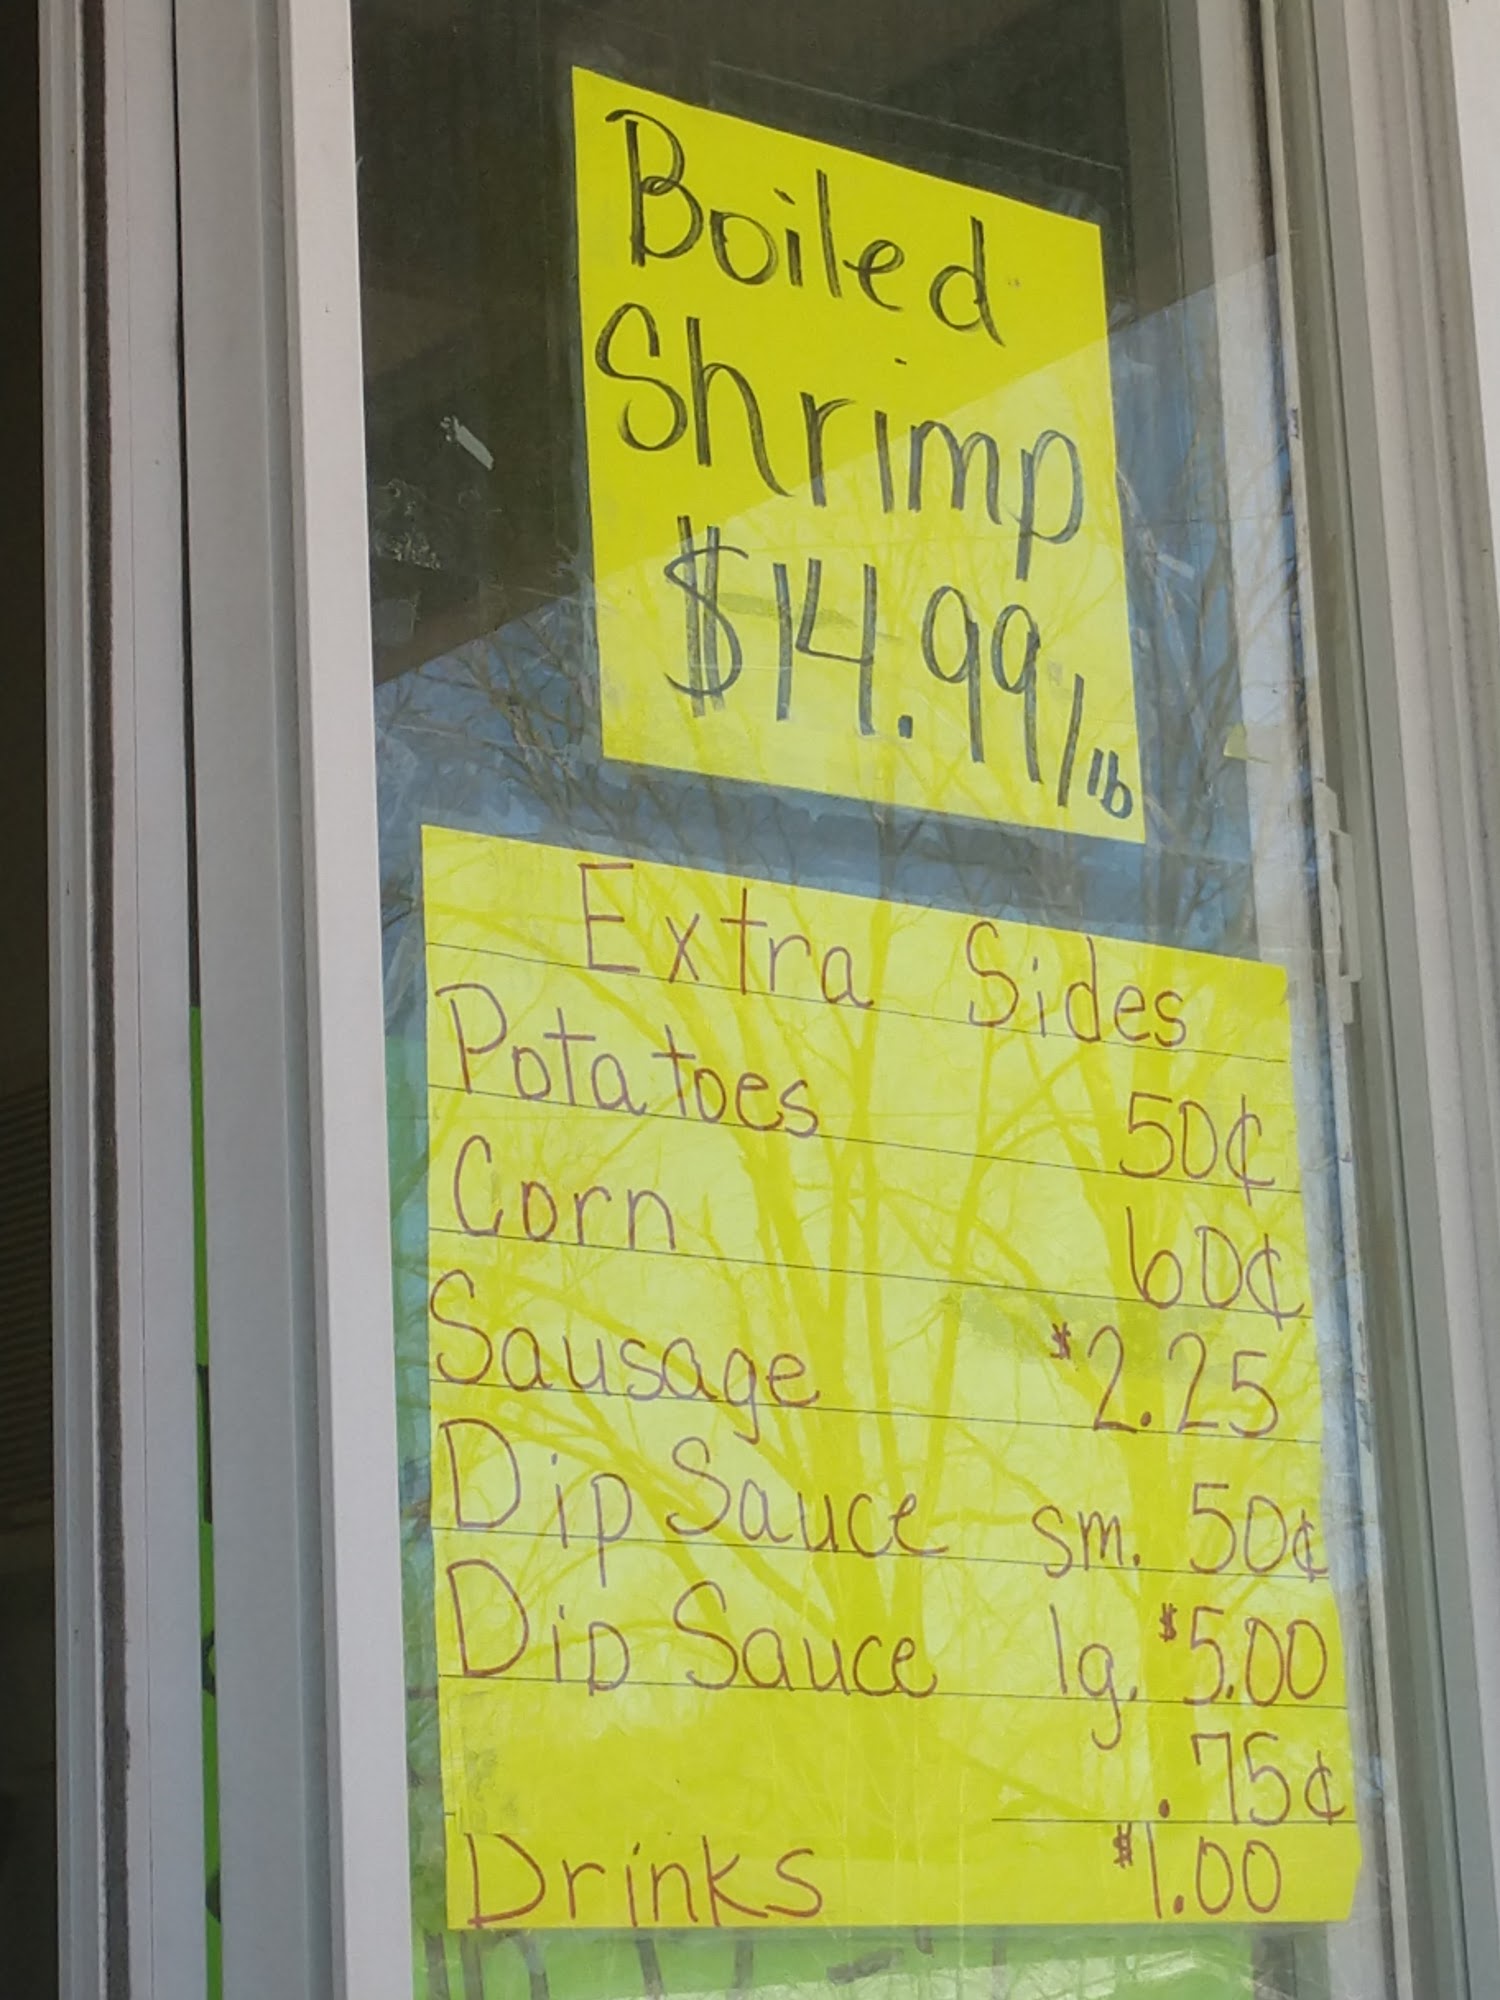 Boiled
Shrimp
$14.99/lb
Extra Sides
Potatoes 50¢
Corn 60¢
Sausage $2.25
Dip Sauce sm. 50¢
Dip Sauce lg. $5.00
.75¢
Drinks $1.00